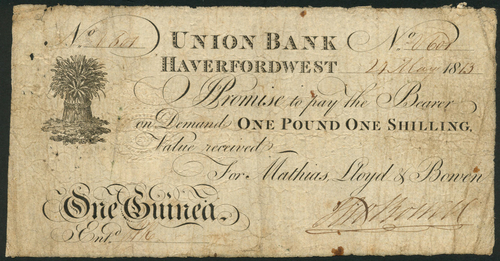 No UNION BANK No
HAVERFORDWEST 24 May 1813
I Promise to pay the Bearer
on Demand ONE POUND ONE SHILLING,
Value received
For Mathias, Lloyd & Bowen
One Guinea.
Entd.